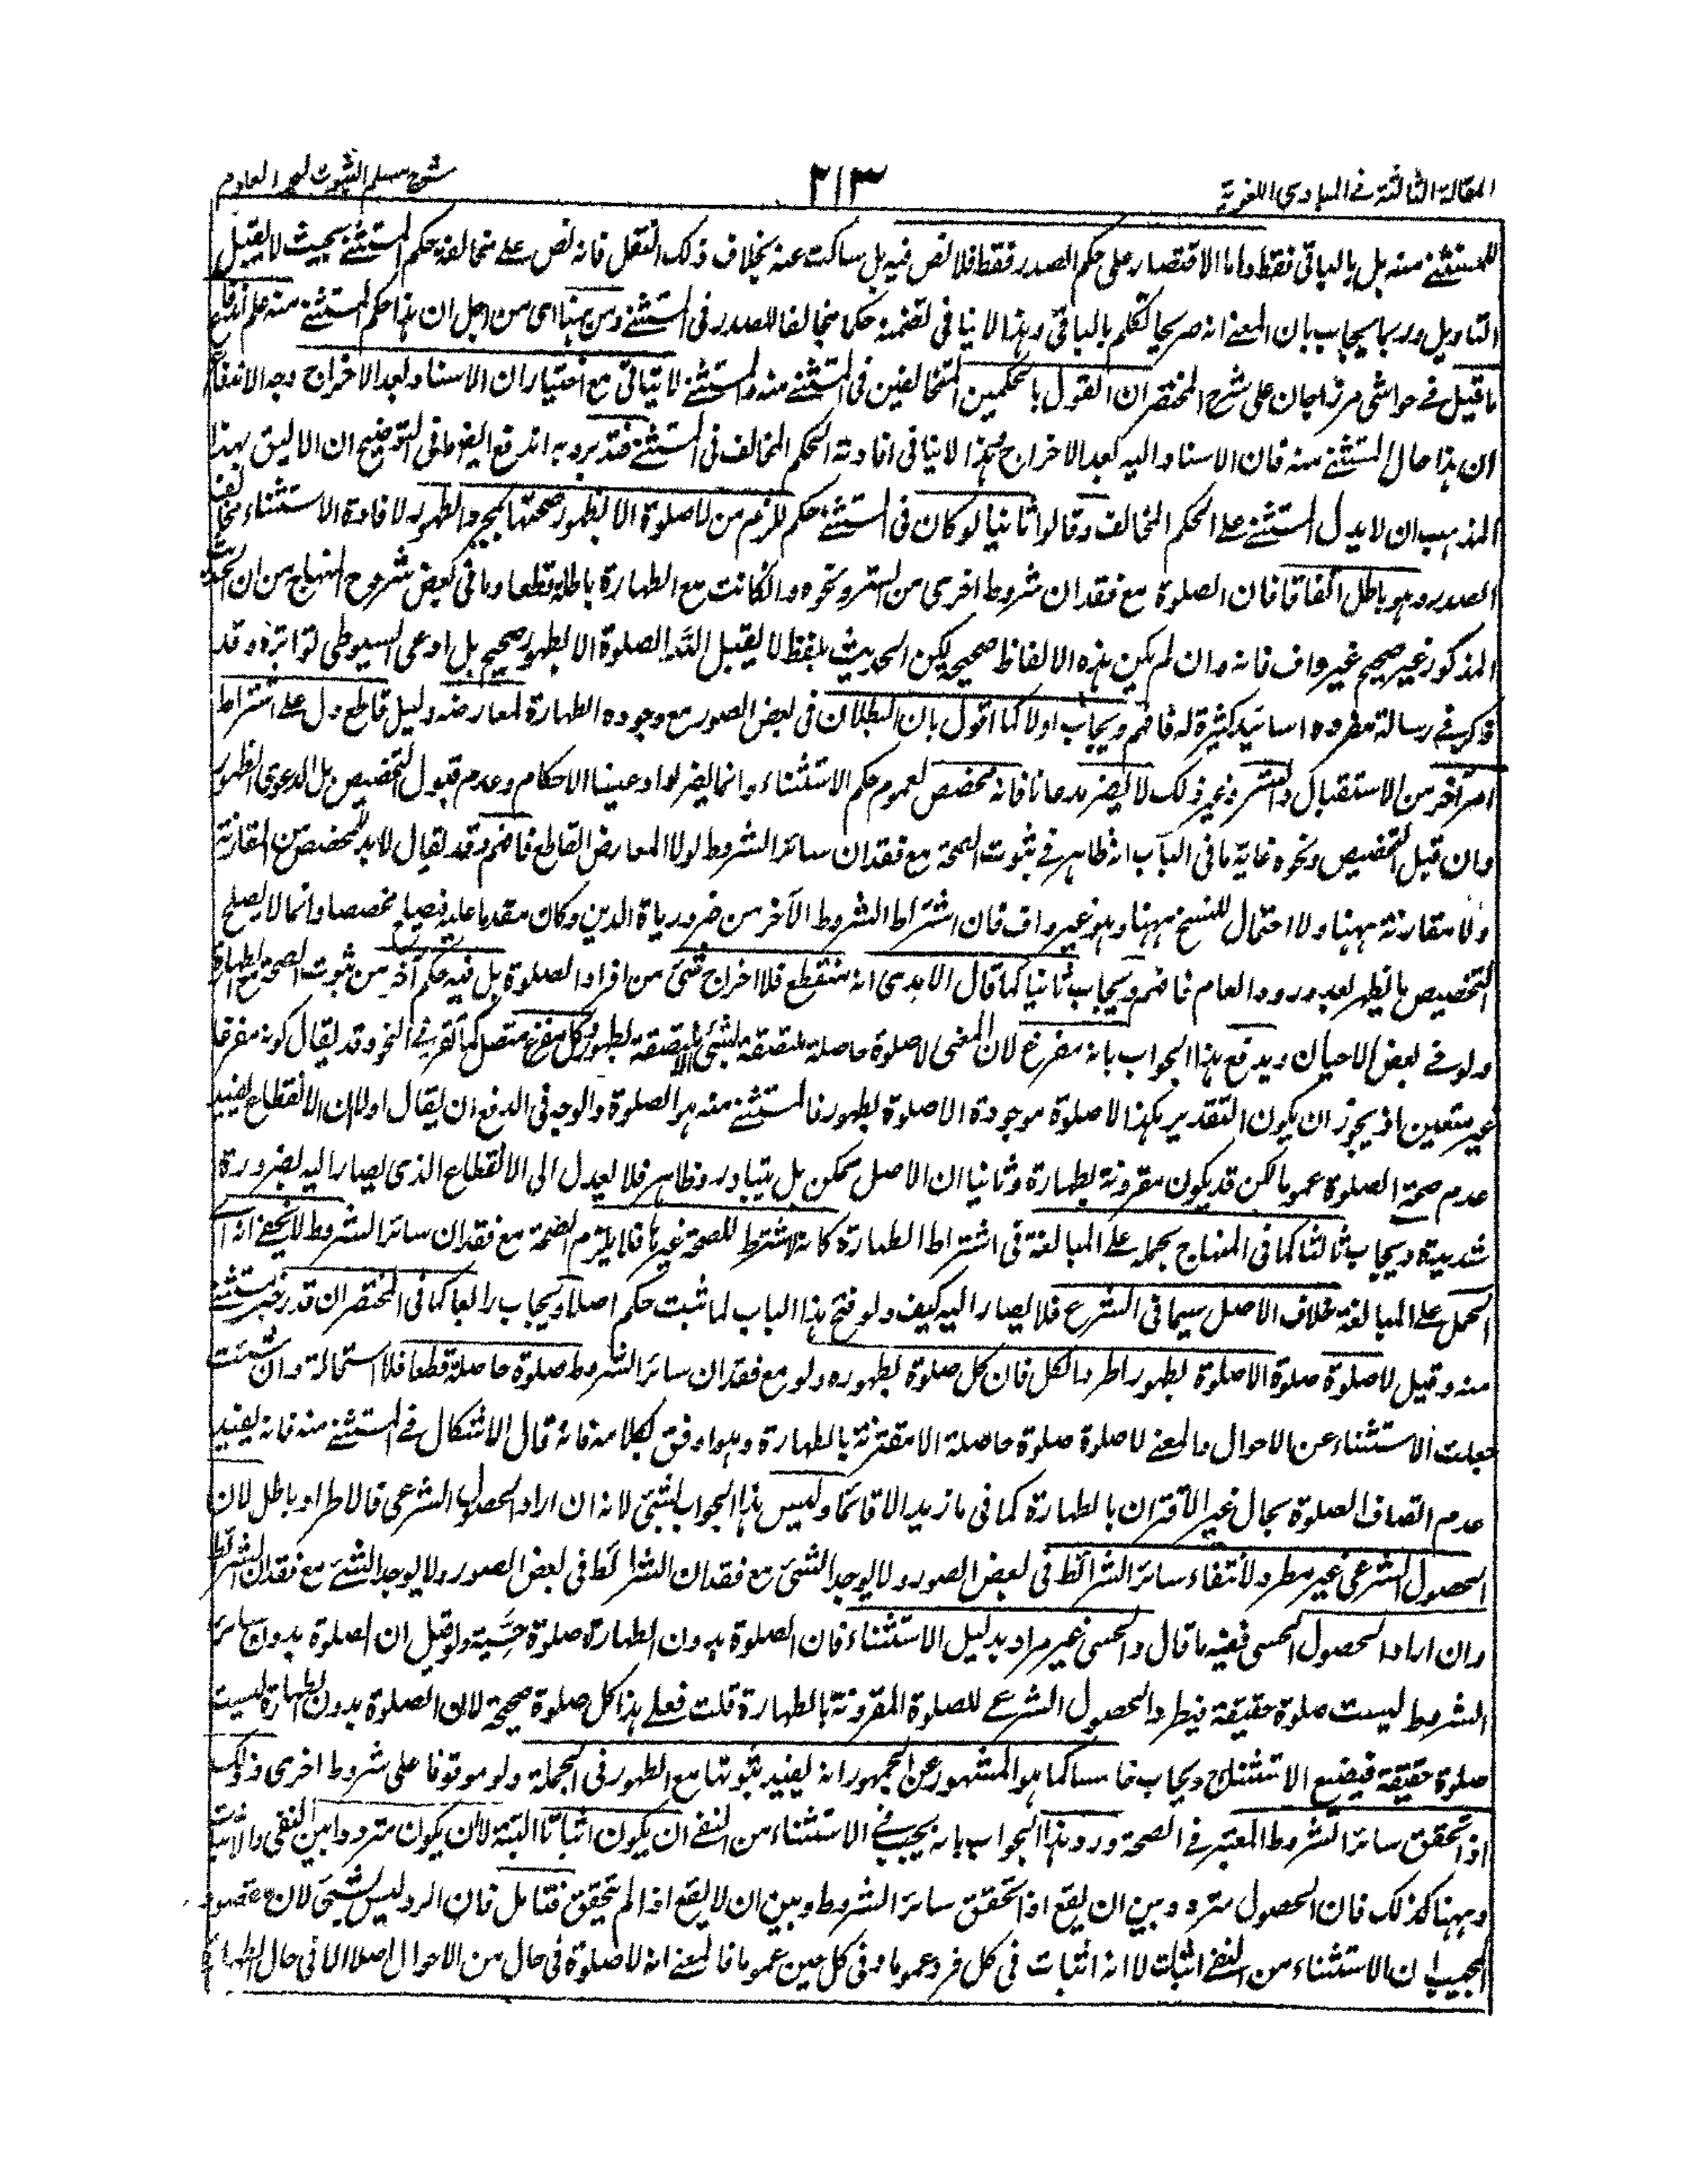 المقالة الثالثة في المبادى اللغوية
٢١٣
شرح مسلم الثبوت لبحر العلوم
للمستثنى منه بل بالباقى فقط واما الاقتصار على حكم الصدر فقط فلا نص فيه بل ساكت عنه بخلاف ذلك النقل فانه نص على مخالفة حكم المستثنى بحيث لا يقبل
التاويل وربما يجاب بان المعنى انه صريحا تكلم بالباقى وهذا لا ينافى تضمنه حكما مخالفا للصدر فى المستثنى ومن ههنا اى من اجل ان هذا حكم المستثنى منه علم اندفاع
ما قيل فى حواشى مرزاجان على شرح المختصر ان القول بالحكمين المتخالفين فى المستثنى منه والمستثنى لا يتاتى مع اختيار ان الاسناد بعد الاخراج وجه الاندفاع
ان هذا حال المستثنى منه فان الاسناد اليه بعد الاخراج فهذا لا ينافى افادة الحكم المخالف فى المستثنى فتدبر وبه اندفع ايضا ما فى التوضيح ان الاليق بهذا
المذهب ان لا يدل المستثنى على الحكم المخالف وقالوا ثانيا لو كان فى المستثنى حكم للزم من لا صلوة الا بطهور صحتها بمجرد الطهور لافادة الاستثناء مخالف
الصدر وهو باطل اتفاقا فان الصلوة مع فقدان شروط اخرى من الستر ونحوه وان كانت مع الطهارة باطلة قطعا وما فى بعض شروح المنهاج من ان الحديث
المذكور غير صحيح غير واف فانه وان لم يكن هذه الالفاظ صحيحة لكن الحديث بلفظ لا يقبل الله الصلوة الا بطهور صحيح بل ادعى السيوطى تواتره وقد
ذكر فى رسالة مفردة اسانيد كثيرة له فافهم ويجاب اولا كما اقول بان البطلان فى بعض الصور مع وجود الطهارة لمعارضة دليل قاطع دل على اشتراط
امر آخر من الاستقبال والستر وغير ذلك لا يضر مدعانا فانه مخصص لعموم حكم الاستثناء وانما يضر لو ادعينا الاحكام وعدم قبول التخصيص بل الدعوى الظهور
وان قبل التخصيص ونحوه غاية ما فى الباب انه ظاهر فى ثبوت الصحة مع فقدان سائر الشروط لولا المعارض القاطع فافهم وقد يقال لابد للمخصص من المقارنة
ولا مقارنة ههنا ولا احتمال للنسخ ههنا وهو غير واف فان اشتراط الشروط الآخر من ضرورياة الدين وكان مقدما عليه فيصلح مخصصا وانما لا يصلح
التخصيص بالظهر بعد ورود العام فافهم ويجاب ثانيا كما قال الآمدى انه منقطع فلا اخراج شئ من افراد الصلوة بل فيه حكم آخر من ثبوت الصحة مع الطهارة
ولو فى بعض الاحيان ويدفع هذا الجواب بانه مفرغ لان المعنى لا صلوة حاصلة ملتصقة بشئ الا ملتصقة بطهور وكل مفرغ متصل كما تقرر فى النحو وقد يقال كونه مفرغا
غير متعين اذ يجوز ان يكون التقدير هكذا لا صلوة موجودة الا صلوة بطهور فالمستثنى منه هو الصلوة والوجه فى الدفع ان يقال اولا ان الانقطاع يفيد
عدم صحة الصلوة عموما لكن قد يكون مقرونة بطهارة وثانيا ان الاصل ممكن بل يتبادر وظاهر فلا يعدل الى الانقطاع الذى يصار اليه لضرورة
شديدة ويجاب ثالثا كما فى المنهاج بحمله على المبالغة فى اشتراط الطهارة كانه لا شرط للصحة غيرها فلا يلزم الصحة مع فقدان سائر الشروط لا يخفى ان
الحمل على المبالغة خلاف الاصل سيما فى الشرع فلا يصار اليه كيف ولو فتح هذا الباب لما ثبت حكم اصلا ويجاب رابعا كما فى المختصر ان قدر خبر مستثنى
منه وقيل لا صلوة صلوة الا صلوة بطهور اطرد الكل فان كل صلوة بطهوره ولو مع فقدان سائر الشروط صلوة حاصلة قطعا فلا استحالة وان شئت
جعلت الاستثناء عن الاحوال والمعنى لا صلوة صلوة حاصلة الا مقترنة بالطهارة وهو اوفق لكلامه فانه قال الاشكال فى المستثنى منه فانه يفيد
عدم اتصاف الصلوة بحال غير الاقتران بالطهارة كما فى ما زيد الا قائما وليس هذا الجواب بشئ لانه ان اراد الحصول الشرعى فالاطراد باطل لان
الحصول الشرعى غير مطرد لانتفاء سائر الشرائط فى بعض الصور ولا يوجد الشئ مع فقدان الشرائط فى بعض الصور ولا يوجد الشئ مع فقدان الشرائط
وان اراد الحصول الحسى ففيه ما قال والحسى غير مراد بدليل الاستثناء فان الصلوة بدون الطهارة صلوة حسية ولو قيل ان الصلوة بدون سائر
الشروط ليست صلوة حقيقة فيطرد الحصول الشرعى للصلوة المقرونة بالطهارة قلت فعلى هذا كل صلوة صحيحة لان الصلوة بدون الطهارة ليست
صلوة حقيقة فيضيع الاستثناء ويجاب خامسا كما هو المشهور عن الجمهور انه يفيد ثبوتها مع الطهور فى الجملة ولو موقوفا على شروط اخرى وذلك
اذا تحقق سائر الشروط المعتبر فى الصحة ورد هذا الجواب بانه يجب فى الاستثناء من النفى ان يكون اثباتا البتة لان يكون مترددا بين النفى والاثبات
وههنا كذلك فان الحصول متردد بين ان يقع اذا تحقق سائر الشروط وبين ان لا يقع اذا لم يتحقق فتامل فان الرد ليس بشئ لان مقصود
المجيب ان الاستثناء من النفى اثبات لا انه اثبات فى كل فرد عموما وفى كل حين عموما فالمعنى انه لا صلوة فى حال من الاحوال اصلا الا فى حال الطهارة